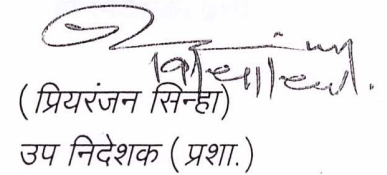 (प्रियरंजन सिन्हा)
उप निदेशक (प्रशा.)